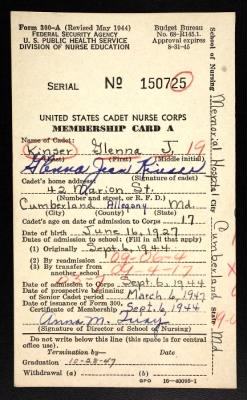 Form 300-A (Revised May 1944)
FEDERAL SECURITY AGENCY
U. S. PUBLIC HEALTH SERVICE
DIVISION OF NURSE EDUCATION
Budget Bureau
No. 68-R145.1.
Approval expires
8-31-45
SERIAL No 150725
UNITED STATES CADET NURSE CORPS
MEMBERSHIP CARD A
Name of Cadet:
Kinser Glenna J. 19
(Last) (First) (Middle initial)
Glenna Jean Kinser
(Signature of cadet)
Cadet's home address:
42 Marion St.
(Number and street, or R. F. D.)
Cumberland Allegany Md.
(City) (County) (State)
Cadet's age on date of admission to Corps: 17
Date of birth June 16, 1927
Date of admission to school (Fill in all that apply)
(1) Originally Sept. 6, 1944
(2) By readmission 09-06-4
(3) By transfer from
another school 04-4-17
Date of admission to Corps Sept. 6, 1944
Date of prospective beginning
of Senior Cadet period March 6, 1947
Date of issuance of Form 300,
Certificate of Membership Sept. 6, 1944
Anna M.
(Signature of Director of School of Nursing)
Do not write below this line (this space is for central
office use).
Termination by— Date
Graduation 10-28-47
Withdrawal (a) (b)
GPO 16—40095-1
School of Nursing Memorial Hospital City Cumberland State Md.